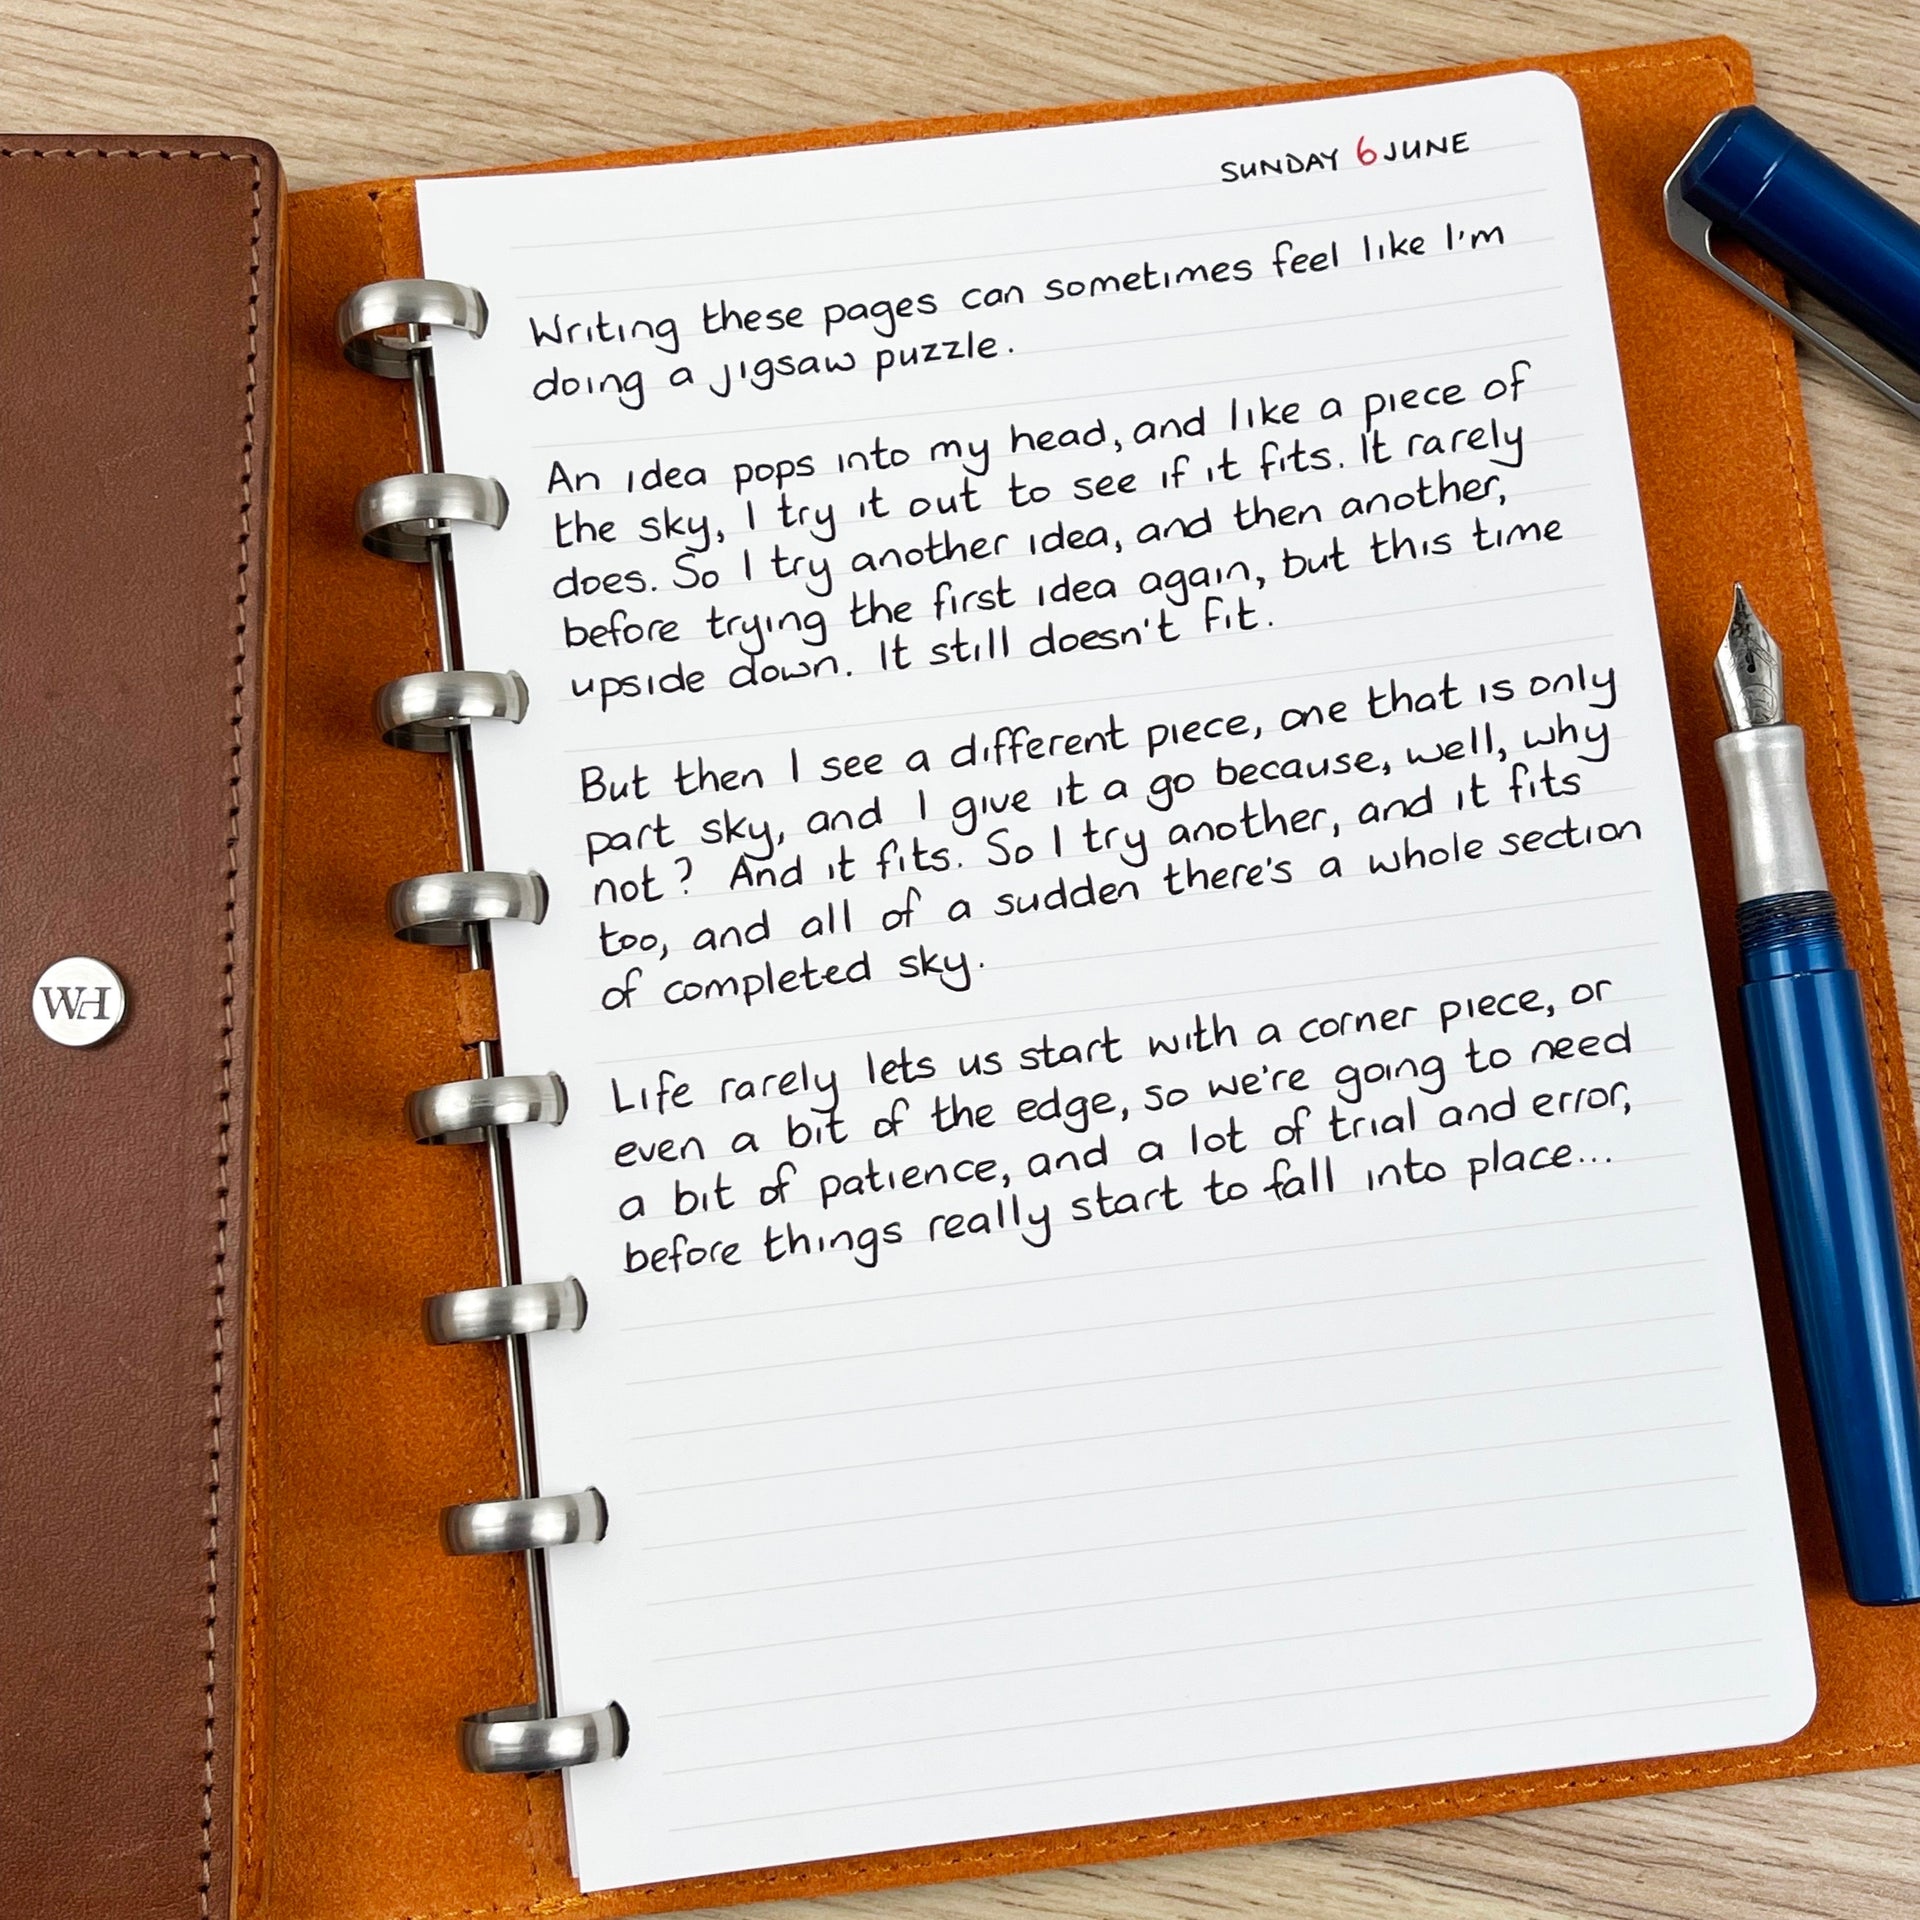 SUNDAY 6 JUNE
Writing these pages can sometimes feel like I'm
doing a jigsaw puzzle.
An idea pops into my head, and like a piece of
the sky, I try it out to see if it fits. It rarely
does. So I try another idea, and then another,
before trying the first idea again, but this time
upside down. It still doesn't fit.
But then I see a different piece, one that is only
part sky, and I give it a go because, well, why
not? And it fits. So I try another, and it fits
too, and all of a sudden there's a whole section
of completed sky.
Life rarely lets us start with a corner piece, or
even a bit of the edge, so we're going to need
a bit of patience, and a lot of trial and error,
before things really start to fall into place...
WH